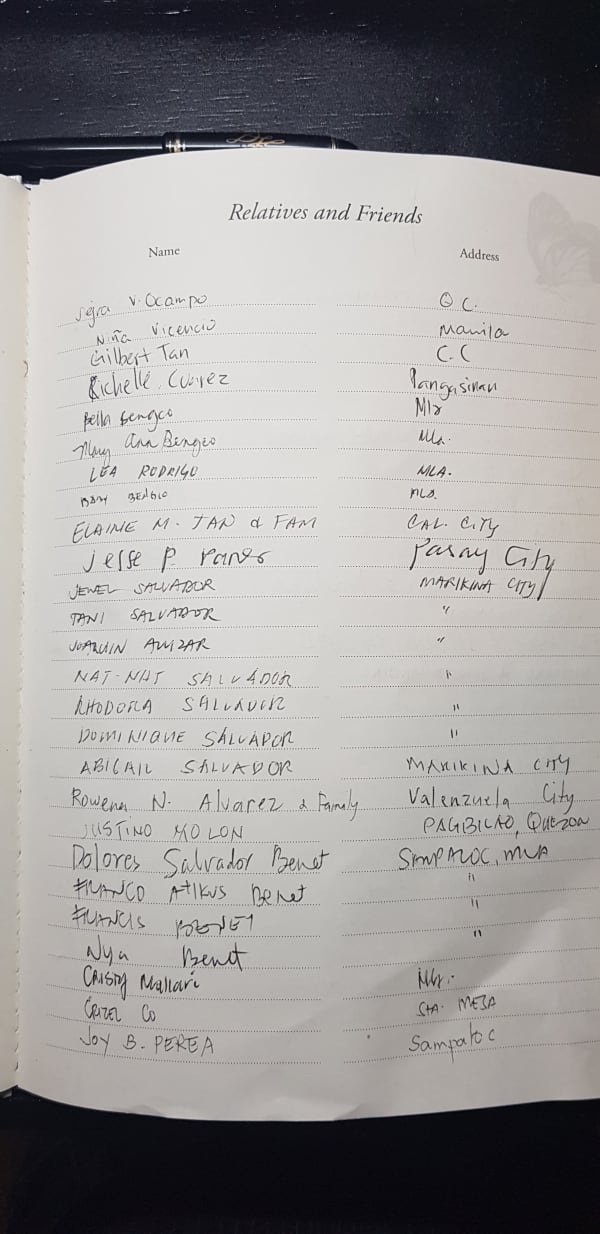 Relatives and Friends
Name Address
V. Ocampo Q C.
Niña Vicencio Manila
Gilbert Tan C.C
Richelle Cuarez Pangasinan
Bella Bengco Mla
Mary Ann Bengco Mla.
LEA RODRIGO MLA.
MLA.
ELAINE M. TAN & FAM CAL. CITY
Jesse P. Panes Pasay City
JEWEL SALVADOR MARIKINA CITY
TANI SALVADOR "
JOAQUIN ALIZAR "
NAT-NAT SALVADOR "
RHODORA SALVADOR "
DOMINIQUE SALVADOR "
ABIGAIL SALVADOR MARIKINA CITY
Rowena N. Alvarez & Family Valenzuela City
JUSTINO MOLON PAGBILAO, QUEZON
Dolores Salvador Benet SAMPALOC, MLA
FRANCO ATIKUS Benet "
FRANCIS BENET "
Nya Benet "
CRISTY Mallari Mla.
CRIZEL CO STA. MESA
JOY B. PEREA Sampaloc